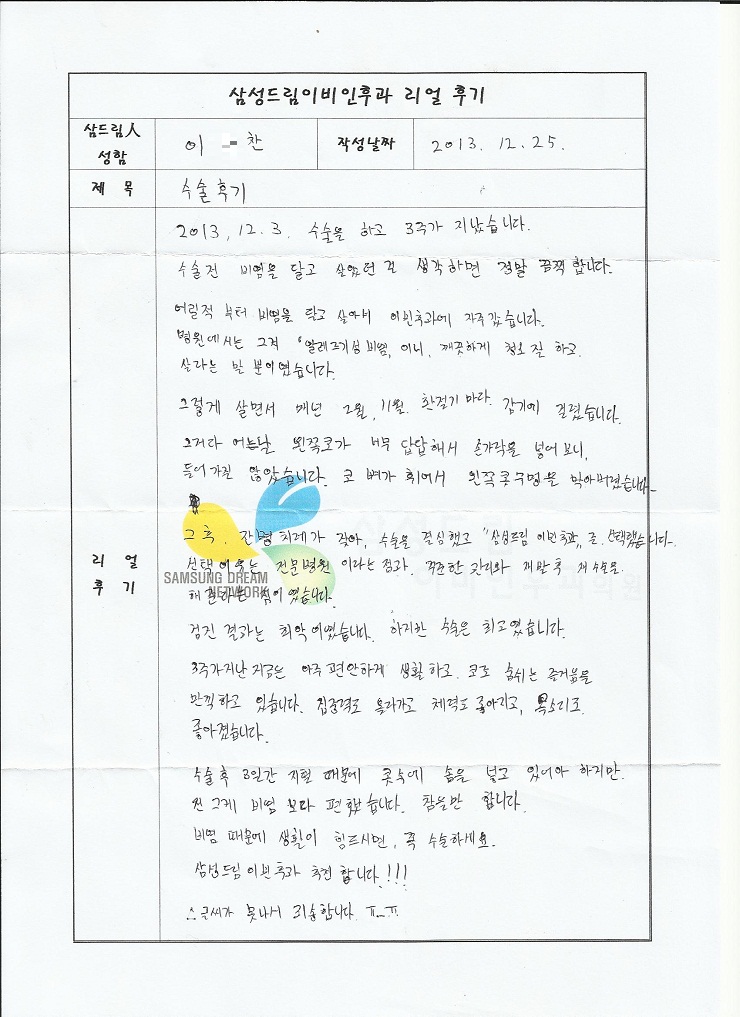 삼성드림이비인후과 리얼 후기
삼드림人 성함
이 찬
작성날짜
2013. 12. 25.
제 목
수술후기
리 얼
후 기
2013. 12. 3. 수술을 하고 3주가 지났습니다.
수술전 비염을 달고 살았던 걸 생각하면 정말 끔찍합니다.
어릴적 부터 비염을 달고 살아서 이빈후과에 자주갔습니다.
병원에서는 그저 '알레르기성 비염, 이니, 깨끗하게 청소 잘 하고
살라는 말 뿐이였습니다.
그렇게 살면서 매년 2월, 11월. 환절기 마다. 감기에 걸렸습니다.
그러다 어느날 왼쪽코가 너무 답답해서 손가락을 넣어 보니,
들어 가질 않았습니다. 코 뼈가 휘어서 왼쪽콧구멍을 막아버렸습니다.
그 후, 잔병 치레가 잦아, 수술을 결심했고 "삼성드림 이빈후과" 를 선택했습니다.
선택 이유는 전문병원 이라는 점과 꾸준한 관리와 재발 후 재수술도
해 준다는 점이였습니다.
검진 결과는 최악이였습니다. 하지만 수술은 최고였습니다.
3주가지난 지금은 아주 편안하게 생활하고. 코로 숨쉬는 즐거움을
만끽하고 있습니다. 집중력도 올라가고 체력도 좋아지고, 목소리도
좋아졌습니다.
수술후 3일간 지혈 때문에 콧속에 솜을 넣고 있어야 하지만.
전 그게 비염 보다 편했습니다. 참을만 합니다.
비염 때문에 생활이 힘드시면, 꼭 수술하세요.
삼성드림이빈후과 추천 합니다.!!!
△글씨가 못나서 죄송합니다 ㅠ_ㅠ
SAMSUNG DREAM
NETWORK
이비인후과의원